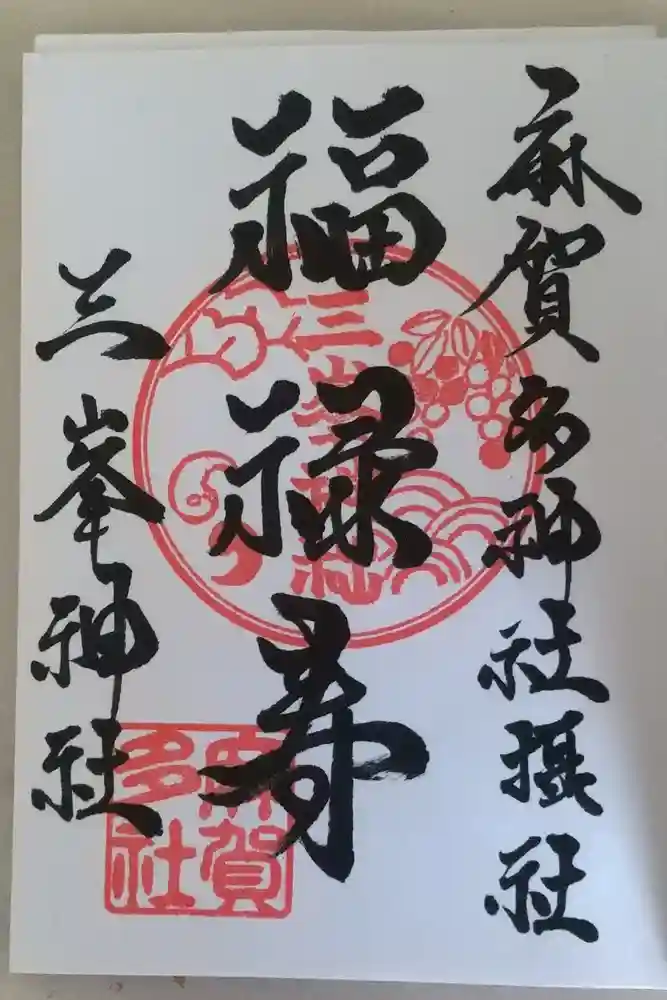 麻賀多神社摂社
福禄寿
三峯神社
三峯神社
麻賀
多社